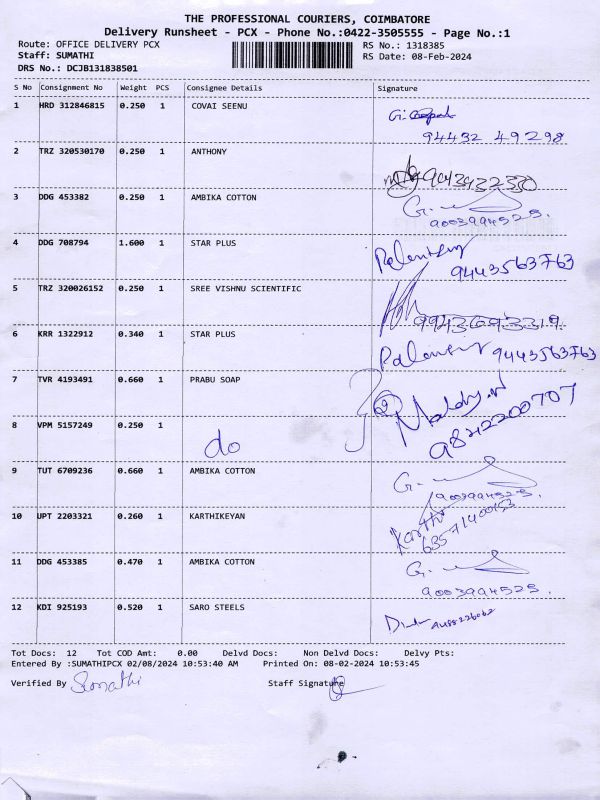 THE PROFESSIONAL COURIERS, COIMBATORE
Delivery Runsheet - PCX - Phone No.:0422-3505555 - Page No.:1
Route: OFFICE DELIVERY PCX
RS No. : 1318385
Staff: SUMATHI
RS Date: 08-Feb-2024
DRS No.: DCJB131838501
S No Consignment No Weight PCS Consignee Details Signature
1 HRD 312846815 0.250 1 COVAI SEENU
94432 49298
2 TRZ 320530170 0.250 1 ANTHONY
3 DDG 453382 0.250 1 AMBIKA COTTON G.
9003994525.
4 DDG 708794 1.600 1 STAR PLUS
9443563763
5 TRZ 320026152 0.250 1 SREE VISHNU SCIENTIFIC
9943693319
6 KRR 1322912 0.340 1 STAR PLUS
9443563763
7 TVR 4193491 0.660 1 PRABU SOAP 2
9842200707
8 VPM 5157249 0.250 1
do
9 TUT 6709236 0.660 1 AMBIKA COTTON G.
9003994525.
10 UPT 2203321 0.260 1 KARTHIKEYAN Karthi
11 DDG 453385 0.470 1 AMBIKA COTTON G.
9003994525.
12 KDI 925193 0.520 1 SARO STEELS
Tot Docs: 12 Tot COD Amt: 0.00 Delvd Docs: Non Delvd Docs: Delvy Pts:
Entered By :SUMATHIPCX 02/08/2024 10:53:40 AM Printed On: 08-02-2024 10:53:45
Verified By Sumathi Staff Signature